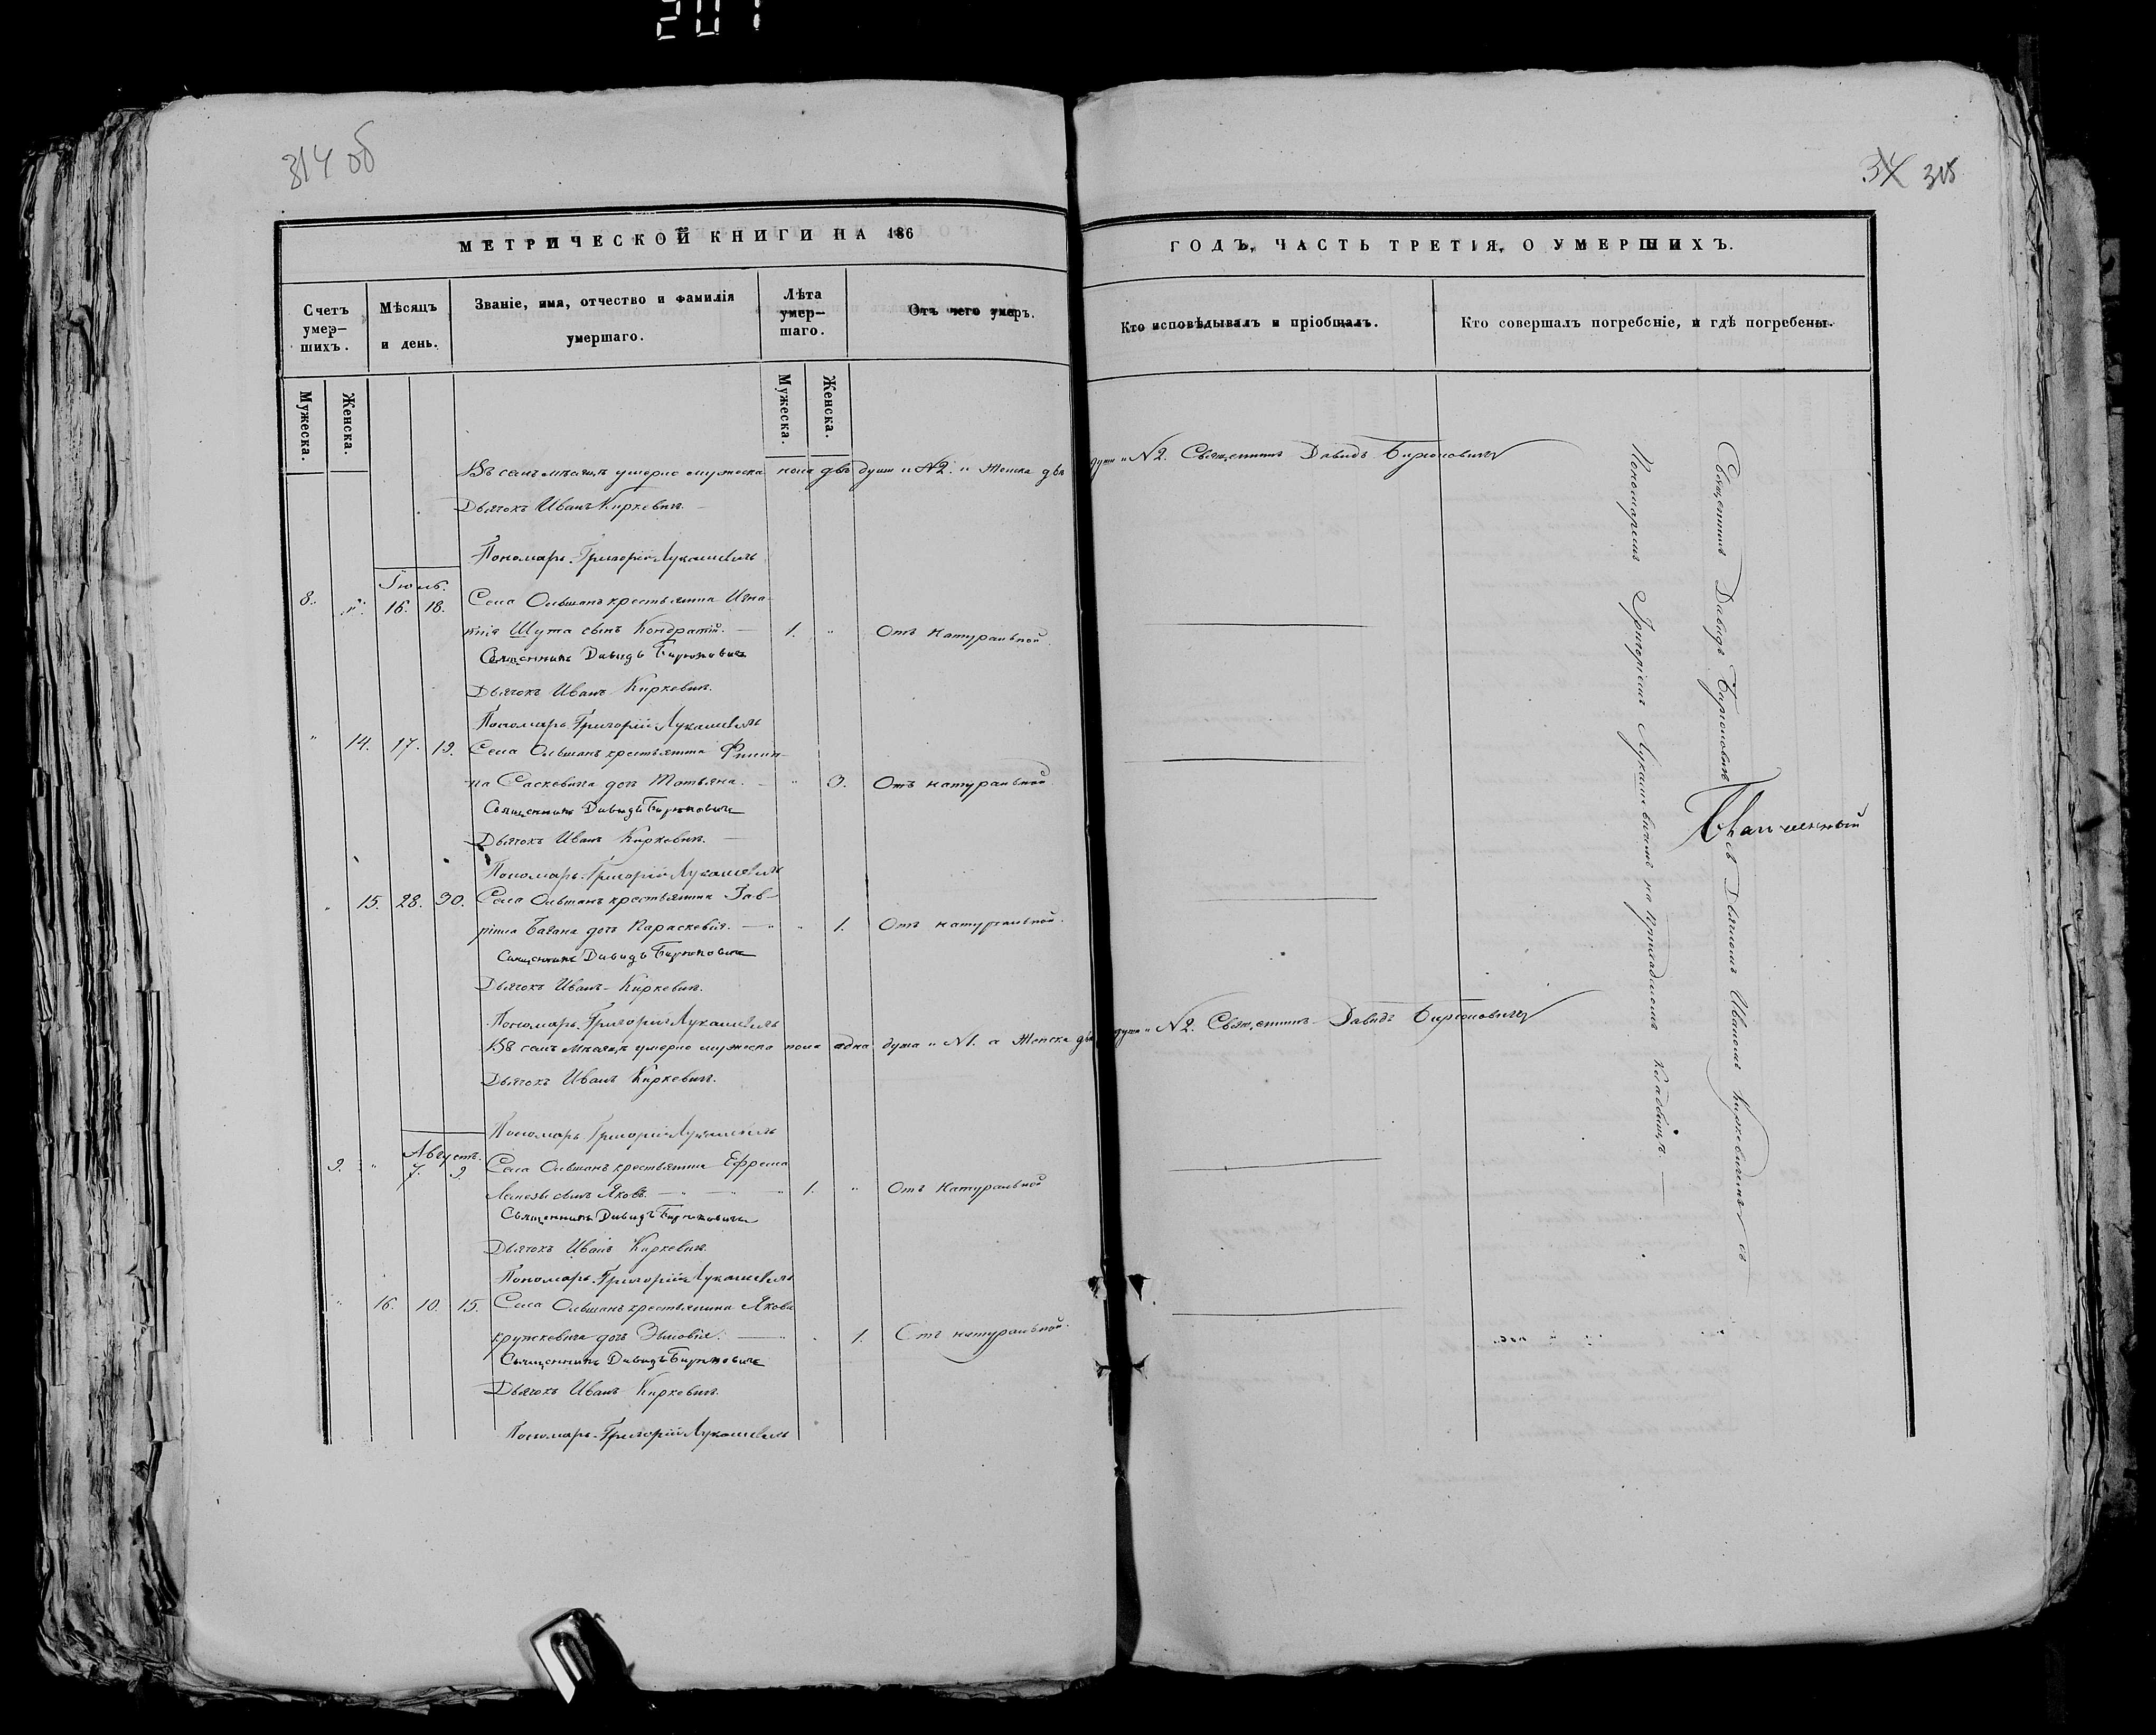 201
314 об
34 315
МЕТРИЧЕСКОЙ КНИГИ НА 186
ГОДЪ, ЧАСТЬ ТРЕТІЯ, О УМЕРШИХЪ.
Счетъ умер-шихъ.
Мѣсяцъ и день.
Званіе, имя, отчество и фамилія умершаго.
Лѣта умер-шаго.
Отъ чего умеръ.
Кто исповѣдывалъ и пріобщалъ.
Кто совершалъ погребеніе, и гдѣ погребены.
Мужеска.
Женска.
Мужеска.
Женска.
Въ семъ мѣсяцѣ умерло мужеска пола двѣ души "N2. " Женска двѣ души "N2. Священникъ Давидъ Бирюковичъ
Дьячокъ Иванъ Киркевичъ.
Пономарь Григорій Лукашевичъ
Іюль.
8. " 16. 18. Села Ольшанъ крестьянина Игна-
тія Шута сынъ Кондратій. 1. " Отъ натуральной
Священникъ Давидъ Бирюковичъ
Дьячокъ Иванъ Киркевичъ.
Пономарь Григорій Лукашевичъ
" 14. 17. 19. Села Ольшанъ крестьянина Филип-
па Сасковича дочь Татьяна. " 3. Отъ натуральной
Священникъ Давидъ Бирюковичъ
Дьячокъ Иванъ Киркевичъ.
Пономарь Григорій Лукашевичъ
" 15. 28. 30. Села Ольшанъ крестьянина Гав-
ріила дочь Параскевія. " 1. Отъ натуральной.
Священникъ Давидъ Бирюковичъ
Дьячокъ Иванъ Киркевичъ.
Пономарь Григорій Лукашевичъ
Въ семъ мѣсяцѣ умерло мужеска пола одна душа "N1. а Женска двѣ души "N2. Священникъ Давидъ Бирюковичъ
Дьячокъ Иванъ Киркевичъ.
Пономарь Григорій Лукашевичъ
Августъ.
9. " 7. 9. Села Ольшанъ крестьянина Ефрема
сынъ Яковъ. 1. " Отъ Натуральной
Священникъ Давидъ Бирюковичъ
Дьячокъ Иванъ Киркевичъ.
Пономарь Григорій Лукашевичъ
" 16. 10. 15. Села Ольшанъ крестьянина Якова
Кружкевича дочь " 1. Отъ натуральной.
Священникъ Давидъ Бирюковичъ
Дьячокъ Иванъ Киркевичъ.
Пономарь Григорій Лукашевичъ
Священникъ Давидъ Бирюковичъ съ Дьячкомъ Иваномъ Киркевичемъ съ
Пономаремъ Григоріемъ Лукашевичемъ на кладбищѣ.